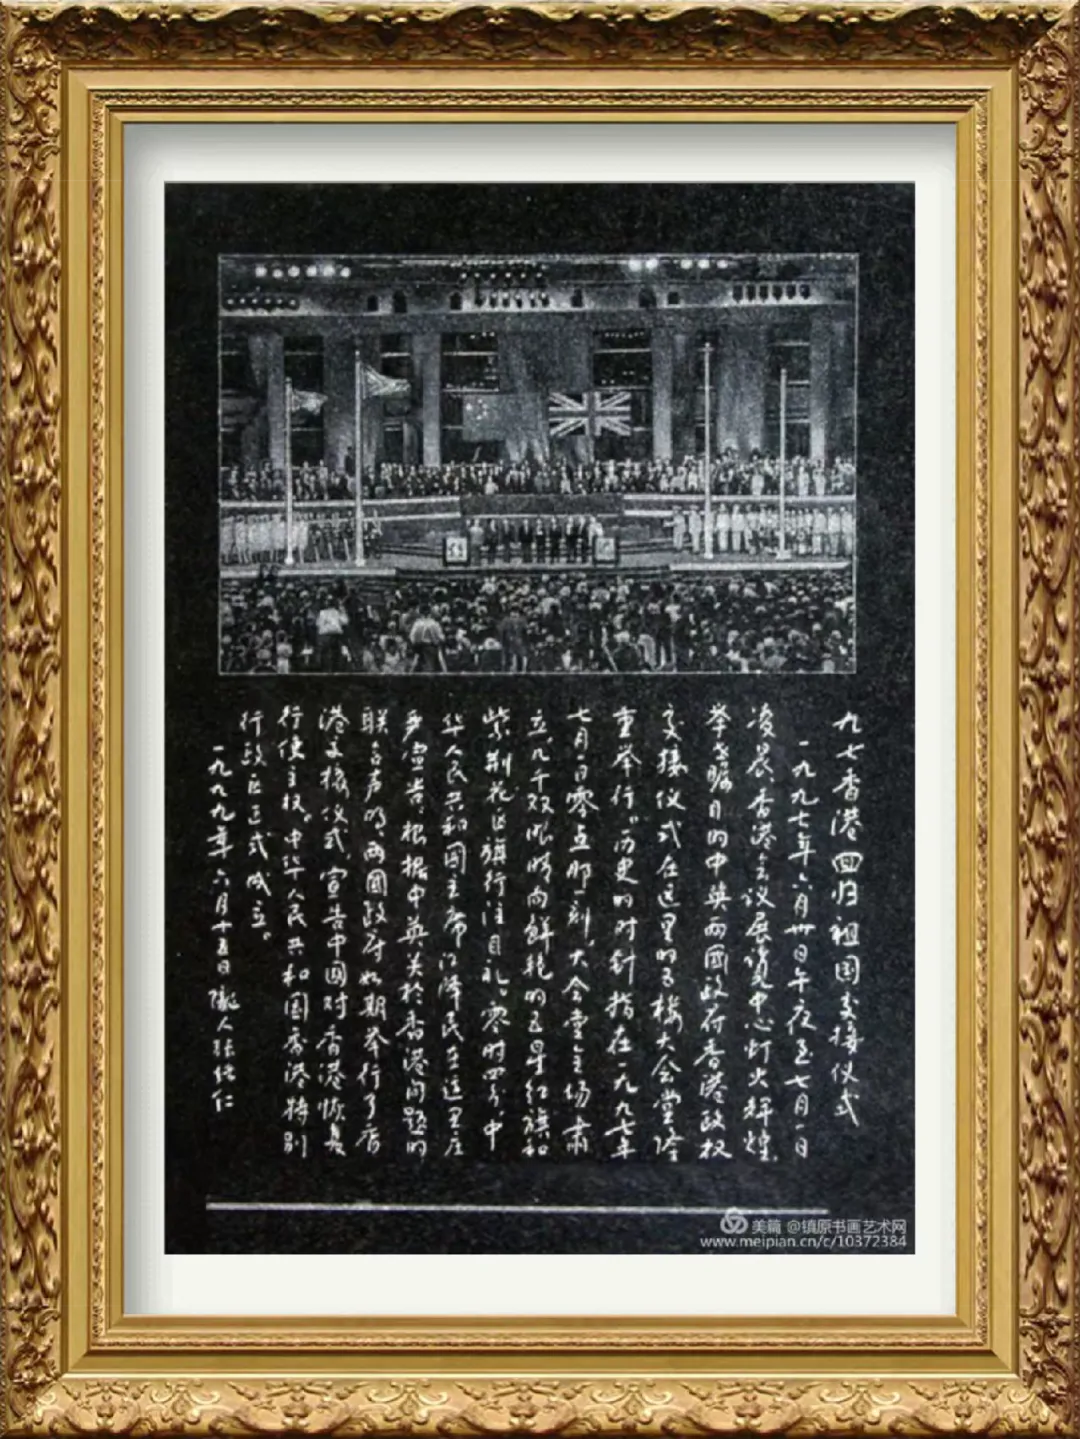 九七香港回归祖国交接仪式
一九九七年六月卅日午夜至七月一日
凌晨,香港会议展览中心灯火辉煌。
举世瞩目的中英两國政府香港政权
交接仪式在这里的五楼大会堂隆
重举行。历史的时针指在一九九七年
七月一日零点那一刻,大会堂全场肃
立,九千双眼睛向鲜艳的五星红旗和
紫荆花区旗行注目礼。零时四分,中
华人民共和國主席江泽民在这里庄
严宣告:根据中英关於香港问题的
联合声明,两國政府如期举行了香
港交接仪式,宣告中國对香港恢复
行使主权。中华人民共和国香港特别
行政区正式成立。
一九九九年六月十五日 陇人张仁
美篇 @镇原书画艺术网
www.meipian.cn/c/10372384